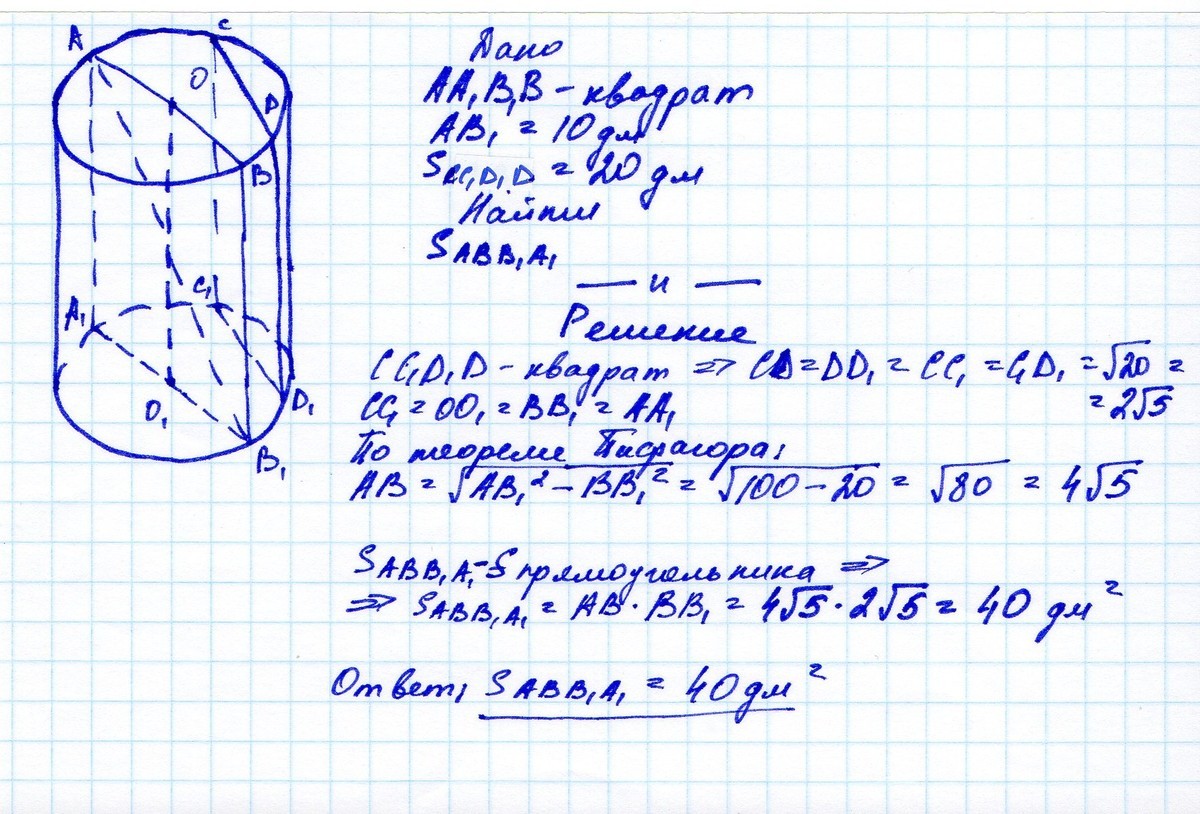 A
C
O
D
B
Дано
AA₁B₁B – квадрат
AB₁ = 10 дм
S CC₁D₁D = 20 дм
Найти
S ABB₁A₁
— и —
Решение
A₁
C₁
O₁
D₁
B₁
CC₁D₁D – квадрат ⇒ CD = DD₁ = CC₁ = C₁D₁ = √20 =
= 2√5
CC₁ = OO₁ = BB₁ = AA₁
По теореме Пифагора:
AB = √AB₁² – BB₁² = √100 – 20 = √80 = 4√5
S ABB₁A₁ – S прямоугольника ⇒
⇒ S ABB₁A₁ = AB · BB₁ = 4√5 · 2√5 = 40 дм²
Ответ: S ABB₁A₁ = 40 дм²